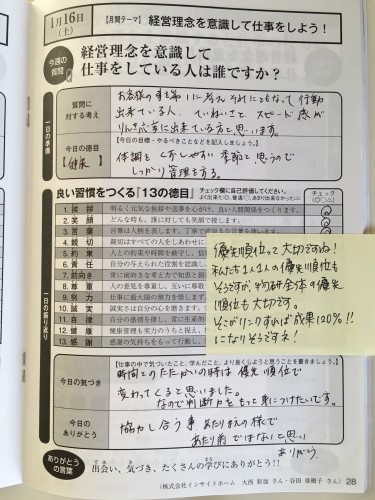 1月16日
(土)
【月間テーマ】 経営理念を意識して仕事をしよう!
今週の
質問
経営理念を意識して
仕事をしている人は誰ですか?
一日の準備
質問に
対する考え
お客様の事を第一に考え それにともなって行動
出来ている人。ていねいさと スピード感が
りんき応変に出来ている方と思います。
今日の徳目
【健康】
【今日の目標・やるべきことなどを記入しましょう。】
体調と くずしやすい 季節と思うので
しっかり管理をする。
良い習慣をつくる『13の徳目』
チェック欄に自己評価してください。
よく出来た:◎、普通:○、あまり出来なかった:△
チェック
(◎○△)
一日の振り返り
1. 挨 拶 明るく元気な挨拶や返事を心がけ、良い人間関係をつくります。
2. 笑 顔 どんな時も、誰に対しても笑顔で接します。
3. 言 葉
4. 親 切 親切はすべての人をしあわせに
5. 約 束 人との約束や時間を守り、信
6. 責 任 自分の与えられた役割を認識し
7. 前向き 常に前向きな考え方で知恵と創
8. 尊 重 人の意見を尊重し、互いに尊敬
9. 努 力 仕事に最大限の努力を惜しまず
10. 誠 実 誠実さは自分の心を磨きます。
11. 自 律 自分の感情を律し、常に生産的
12. 健 康 健康管理も実力のうちと捉え、
13. 感 謝 感謝の気持ちをもって行動し
優先順位って大切ですね!
私たち1人1人の優先順位も
そうですが、判研全体の優先
順位も大切です。
そこがリンクすれば成果120%!!
になりそうですネ!
【仕事の中で気づいたこと、学んだこと、より良くしようと思うことを書きましょう。】
今日の気づき
時間とのたたかいの時は 優先順位で
変わってくると思いました。
なので判断力をもっと身につけたいです。
今日の
ありがとう
協力し合う事 あたりまえの様で
あたり前ではないと思い
ありがとう
ありがとう
の言葉
出会い、気づき、たくさんの学びにありがとう!!
(株式会社インサイトホーム 大西 彩加 さん・谷田 亜樹子 さん) 28